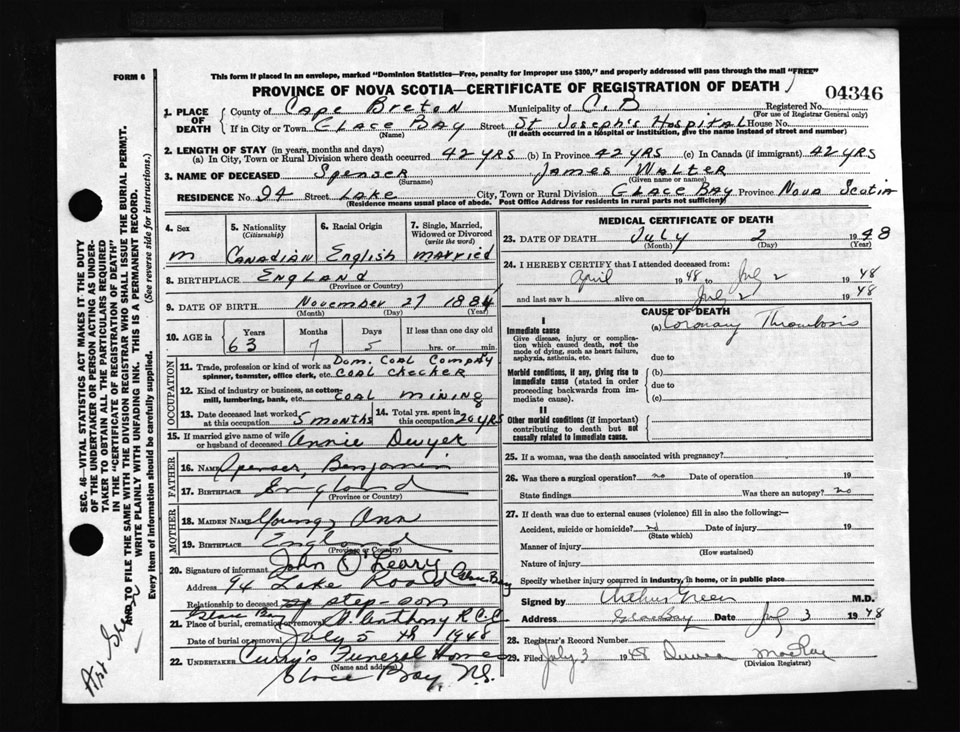 This form if placed in an envelope, marked "Dominion Statistics—Free, penalty for improper use $300," and properly addressed will pass through the mail "FREE"
FORM 6
PROVINCE OF NOVA SCOTIA—CERTIFICATE OF REGISTRATION OF DEATH
04346
1. PLACE OF DEATH
County of Cape Breton Municipality of C.B Registered No.
(For use of Registrar General only)
If in City or Town GLACE BAY Street St Joseph's Hospital House No.
(Name) (If death occurred in a hospital or institution, give the name instead of street and number)
2. LENGTH OF STAY (in years, months and days)
(a) In City, Town or Rural Division where death occurred 42 YRS (b) In Province 42 YRS (c) In Canada (if immigrant) 42 YRS
3. NAME OF DECEASED Spenser James Walter
(Surname) (Given name or names)
RESIDENCE No. 94 Street LAKE City, Town or Rural Division GLACE BAY Province Nova Scotia
(Residence means usual place of abode. Post Office Address for residents in rural parts not sufficient)
4. Sex
5. Nationality (Citizenship)
6. Racial Origin
7. Single, Married, Widowed or Divorced (write the word)
m CANADIAN English married
8. BIRTHPLACE ENGLAND
(Province or Country)
9. DATE OF BIRTH November 27 1884
(Month) (Day) (Year)
10. AGE in Years Months Days If less than one day old
63 7 5 hrs. or min.
OCCUPATION
11. Trade, profession or kind of work as spinner, teamster, office clerk, etc. Dom. Coal Company Coal checker
12. Kind of industry or business, as cotton-mill, lumbering, bank, etc. COAL MINING
13. Date deceased last worked at this occupation 5 months
14. Total yrs. spent in this occupation 20 YRS
15. If married give name of wife or husband of deceased Annie Dwyer
FATHER
16. Name Spenser, Benjamin
17. BIRTHPLACE England
(Province or Country)
MOTHER
18. MAIDEN NAME Young, Ann
19. BIRTHPLACE England
(Province or Country)
20. Signature of informant John O'Leary
Address 94 Lake Road Glace Bay
Relationship to deceased step-son
Glace Bay
21. Place of burial, cremation or removal St. Anthony R.C.C
Date of burial or removal July 5th 1948
22. UNDERTAKER Curry's Funeral Home
(Name and address)
Glace Bay, N.S.
MEDICAL CERTIFICATE OF DEATH
23. DATE OF DEATH July 2 1948
(Month) (Day) (Year)
24. I HEREBY CERTIFY that I attended deceased from:
April 1948 to July 2 1948
and last saw h alive on July 2 1948
CAUSE OF DEATH
I
Immediate cause
Give disease, injury or complication which caused death, not the mode of dying, such as heart failure, asphyxia, asthenia, etc.
(a) Coronary Thrombosis
due to
Morbid conditions, if any, giving rise to immediate cause (stated in order proceeding backwards from immediate cause).
(b)
due to
(c)
II
Other morbid conditions (if important) contributing to death but not causally related to immediate cause.
25. If a woman, was the death associated with pregnancy?
26. Was there a surgical operation? no Date of operation 19
State findings Was there an autopsy? no
27. If death was due to external causes (violence) fill in also the following:—
Accident, suicide or homicide? no Date of injury 19
(State which)
Manner of injury
(How sustained)
Nature of injury
Specify whether injury occurred in industry, in home, or in public place
Signed by Arthur Green M.D.
Address Glace Bay Date July 3 1948
28. Registrar's Record Number
29. Filed July 3 1948
(Division Registrar)
SEC. 46—VITAL STATISTICS ACT MAKES IT THE DUTY
OF THE UNDERTAKER OR PERSON ACTING AS UNDERTAKER TO OBTAIN ALL THE PARTICULARS REQUIRED
IN THE "CERTIFICATE OF REGISTRATION OF DEATH"
AND TO FILE THE SAME WITH THE DIVISION REGISTRAR WHO SHALL ISSUE THE BURIAL PERMIT.
WRITE PLAINLY WITH UNFADING INK. THIS IS A PERMANENT RECORD.
Every item of information should be carefully supplied. (See reverse side for instructions.)